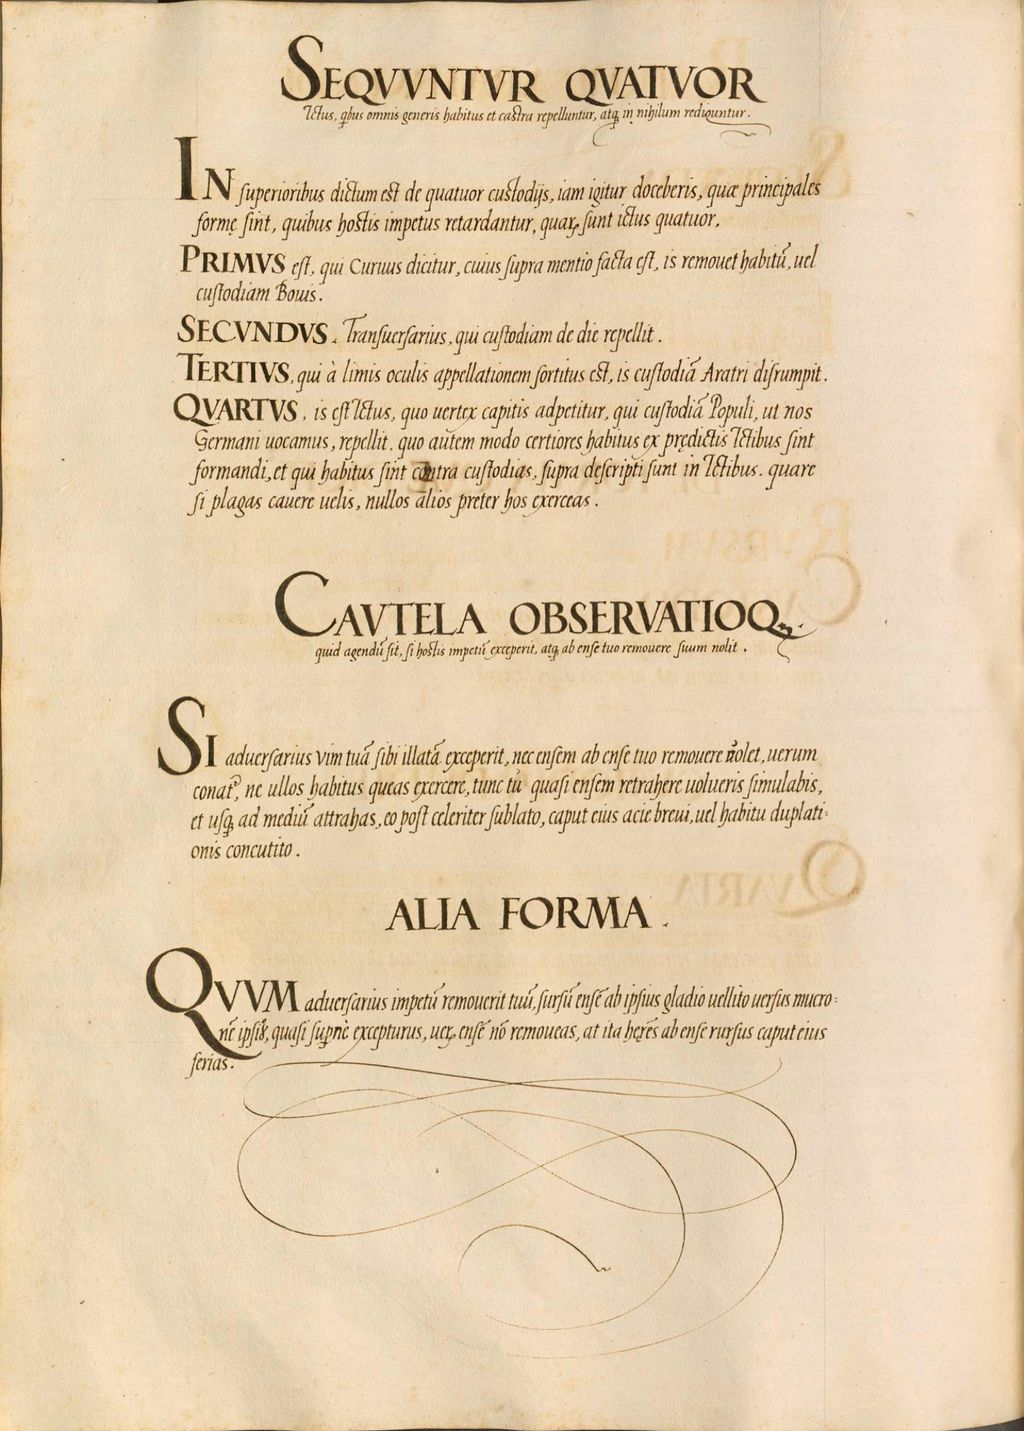 SEQVVNTVR QVATVOR
Ictus, qbus omnis generis habitus et castra repelluntur, atq in nihilum rediguntur.
IN superioribus dictum est de quatuor custodijs, iam igitur doceberis, quæ principales
formę sint, quibus hostis impetus retardantur, quaꝝ sunt ictus quatuor.
PRIMVS est, qui Curuus dicitur, cuius supra mentio facta est, is remouet habitū, uel
custodiam Bouis.
SECVNDVS. Transuersarius, qui custodiam de die repellit.
TERTIVS, qui à limis oculis appellationem sortitus est, is custodiā Aratri disrumpit.
QVARTVS, is est Ictus, quo uertex capitis adpetitur, qui custodiā Populi, ut nos
Germani uocamus, repellit. quo autem modo certiores habitus ex prędictis Ictibus sint
formandi, et qui habitus sint contra custodias, supra descripti sunt in Ictibus. quare
si plagas cauere uelis, nullos alios preter hos exerceas.
CAVTELA OBSERVATIOQ
quid agendū sit, si hostis impetū exceperit, atq ab ense tuo remouere suum nolit.
SI aduersarius vim tuā sibi illatā exceperit, nec ensem ab ense tuo remouere nolet, uerum
conat', ne ullos habitus queas exercere, tunc tu quasi ensem retrahere uolueris simulabis,
et usq ad mediū attrahas, eo post celeriter sublato, caput eius acie breui, uel habitu duplati-
onis concutito.
ALIA FORMA.
QVVM aduersarius impetū remouerit tuū, sursū ensē ab ipsius gladio uellito uersus mucro-
nē ipsius, quasi supnè excepturus, ueꝝ ensē nō remoueas, at ita herēs ab ense rursus caput eius
ferias.